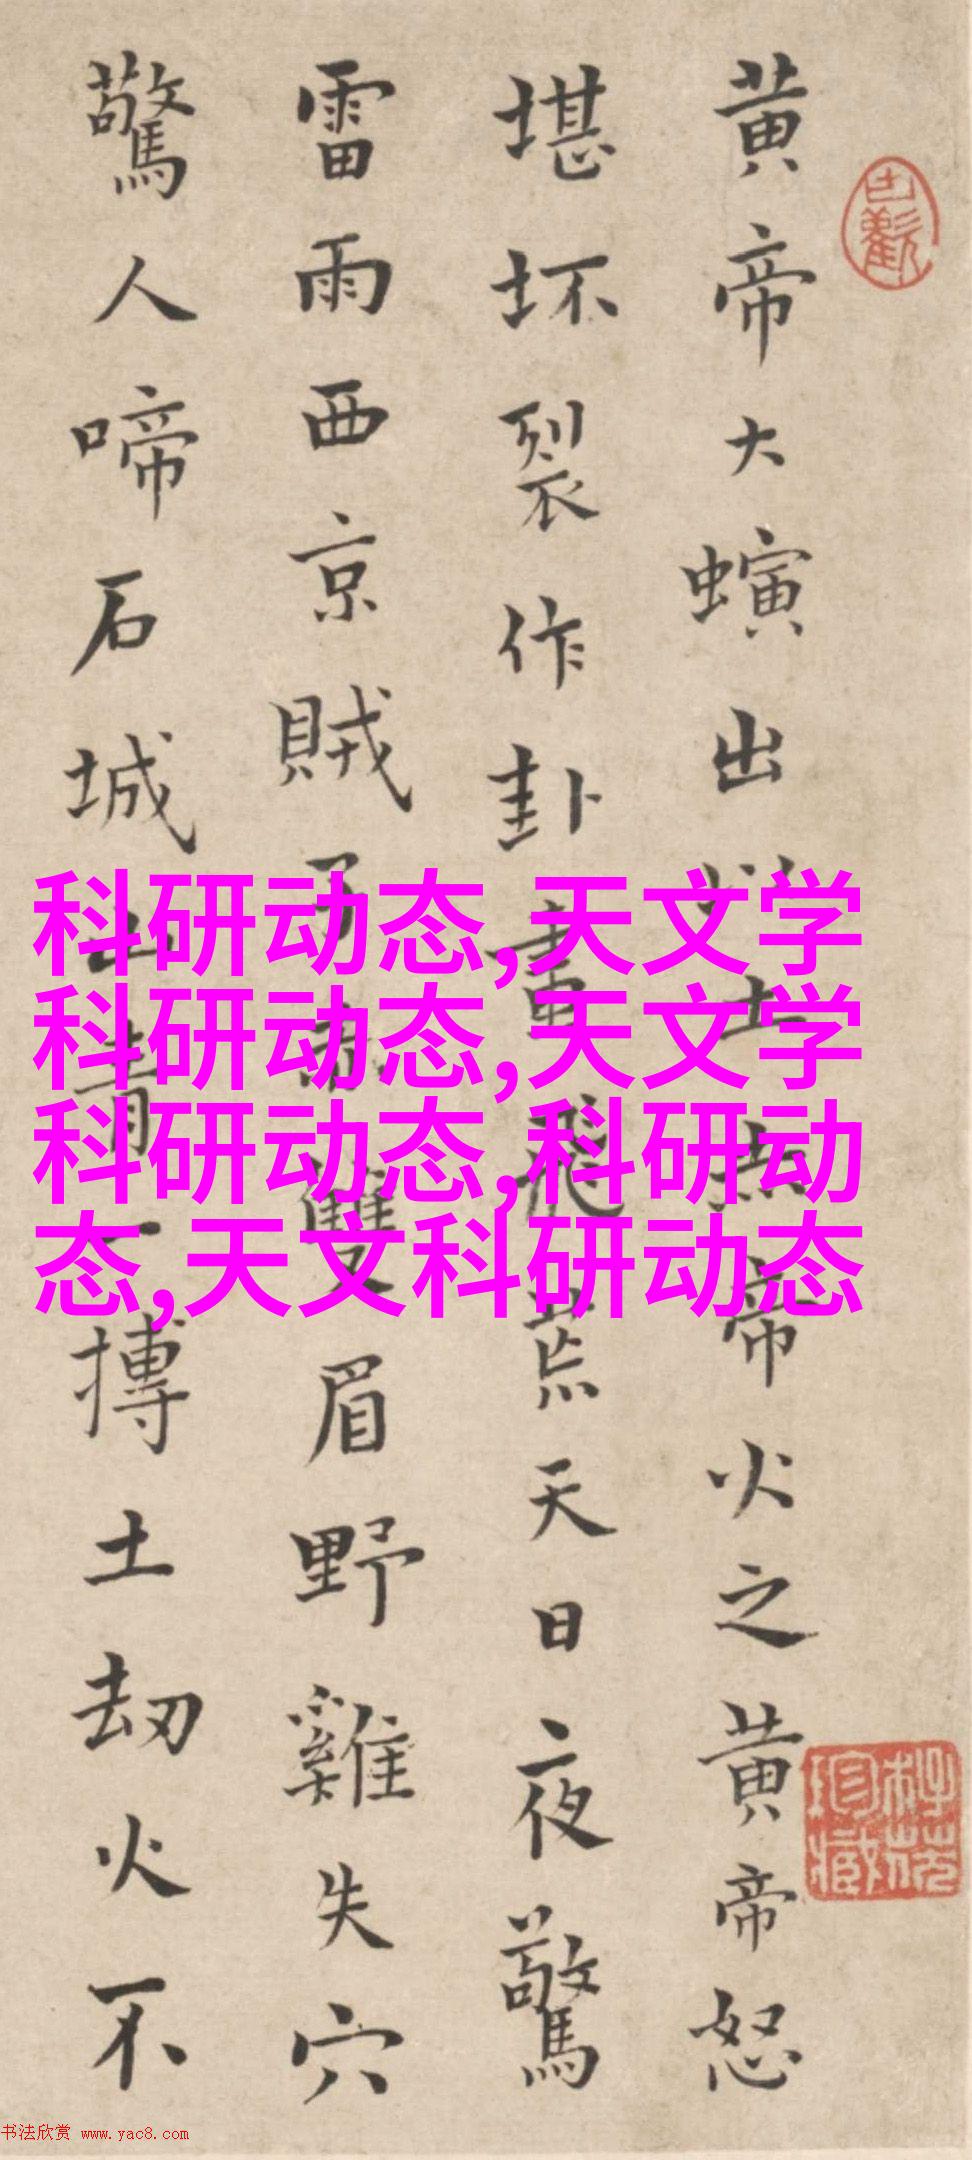 黄帝大螾出土無帝火之黄帝怒
堪坏裂作卦畫飛荒天日夜驚
雷雨西京賊子雙眉野雞失穴
驚人啼石城山青一摶土劫火不
科研动态,天文学
科研动态,天文学
科研动态,科研动
态,天文科研动态
珍藏
书法欣赏 www.yac8.com